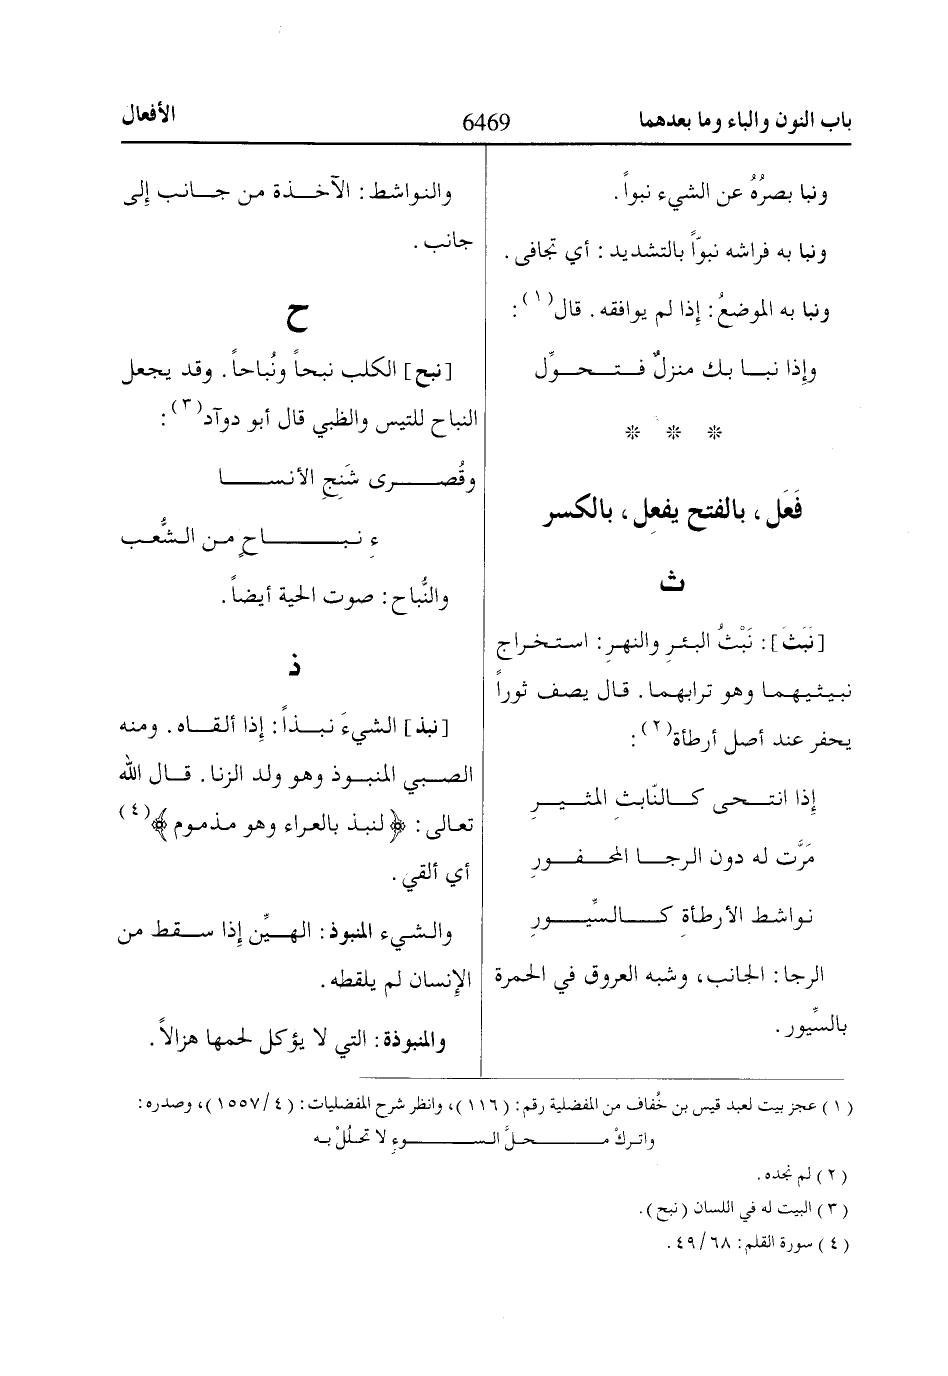 باب النون والباء وما بعدهما
6469
الأفعال
ونبا بصرُهُ عن الشيء نبواً.
ونبا به فراشه نبوّاً بالتشديد: أي تجافى.
ونبا به الموضعُ: إذا لم يوافقه. قال(١):
وإذا نبـا بـك منزلٌ فـتـحـوِّل
* * *
فَعَل، بالفتح يفعِل، بالكسر
ث
[نَبَثَ]: نَبْثُ البئرِ والنهرِ: استخراج
نبيثيهما وهو ترابهما. قال يصف ثوراً
يحفر عند أصل أرطأة(٢):
إذا انتـحى كـالنّابثِ المثيـرِ
مَرَّت له دون الرجـا المحـفـورِ
نواشط الأرطأةِ كـالسِّيـورِ
الرجا: الجانب، وشبه العروق في الحمرة
بالسِّيور.
والنواشط: الآخـذة من جـانب إلى
جانب.
ح
[نبح] الكلب نبحاً ونُباحاً. وقد يجعل
النباح للتيس والظبي قال أبو دوآد(٣):
وقُصـرى شَنِجِ الأنسـا
ءِ نبـاحٍ من الشُّعب
والنُّباح: صوت الحية أيضاً.
ذ
[نبذ] الشيءَ نبـذاً: إذا ألقـاه. ومنه
الصبي المنبـوذ وهو ولد الزنا. قـال الله
تعالى: ﴿لنبذ بالعراء وهو مذموم﴾(٤)
أي ألقي.
والشيء المنبوذ: الهيِّن إذا سقط من
الإنسان لم يلقطه.
والمنبوذة: التي لا يؤكل لحمها هزالاً.
(١) عجز بيت لعبد قيس بن خُفاف من المفضلية رقم: (١١٦)، وانظر شرح المفضليات: (٤/١٥٥٧)، وصدره:
واتركْ مـحلَّ السـوءِ لا تحلُلْ بـه
(٢) لم نجده.
(٣) البيت له في اللسان (نبح).
(٤) سورة القلم: ٤٩/٦٨.